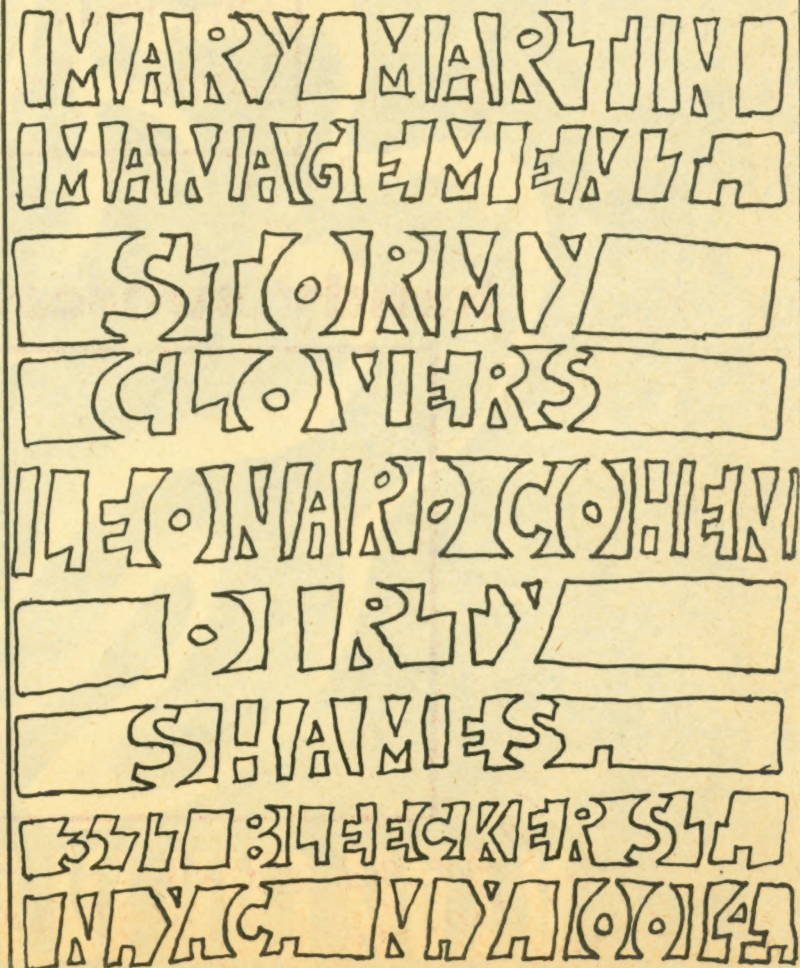 MARY MARTIN
MANAGEMENT.
STORMY
CLOVERS
LEONARD COHEN
DIRTY
SHAMES.
BLEECKER ST.
N.Y.C. N.Y. 10014.